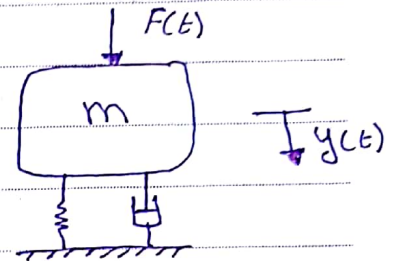 F(t)
m
y(t)